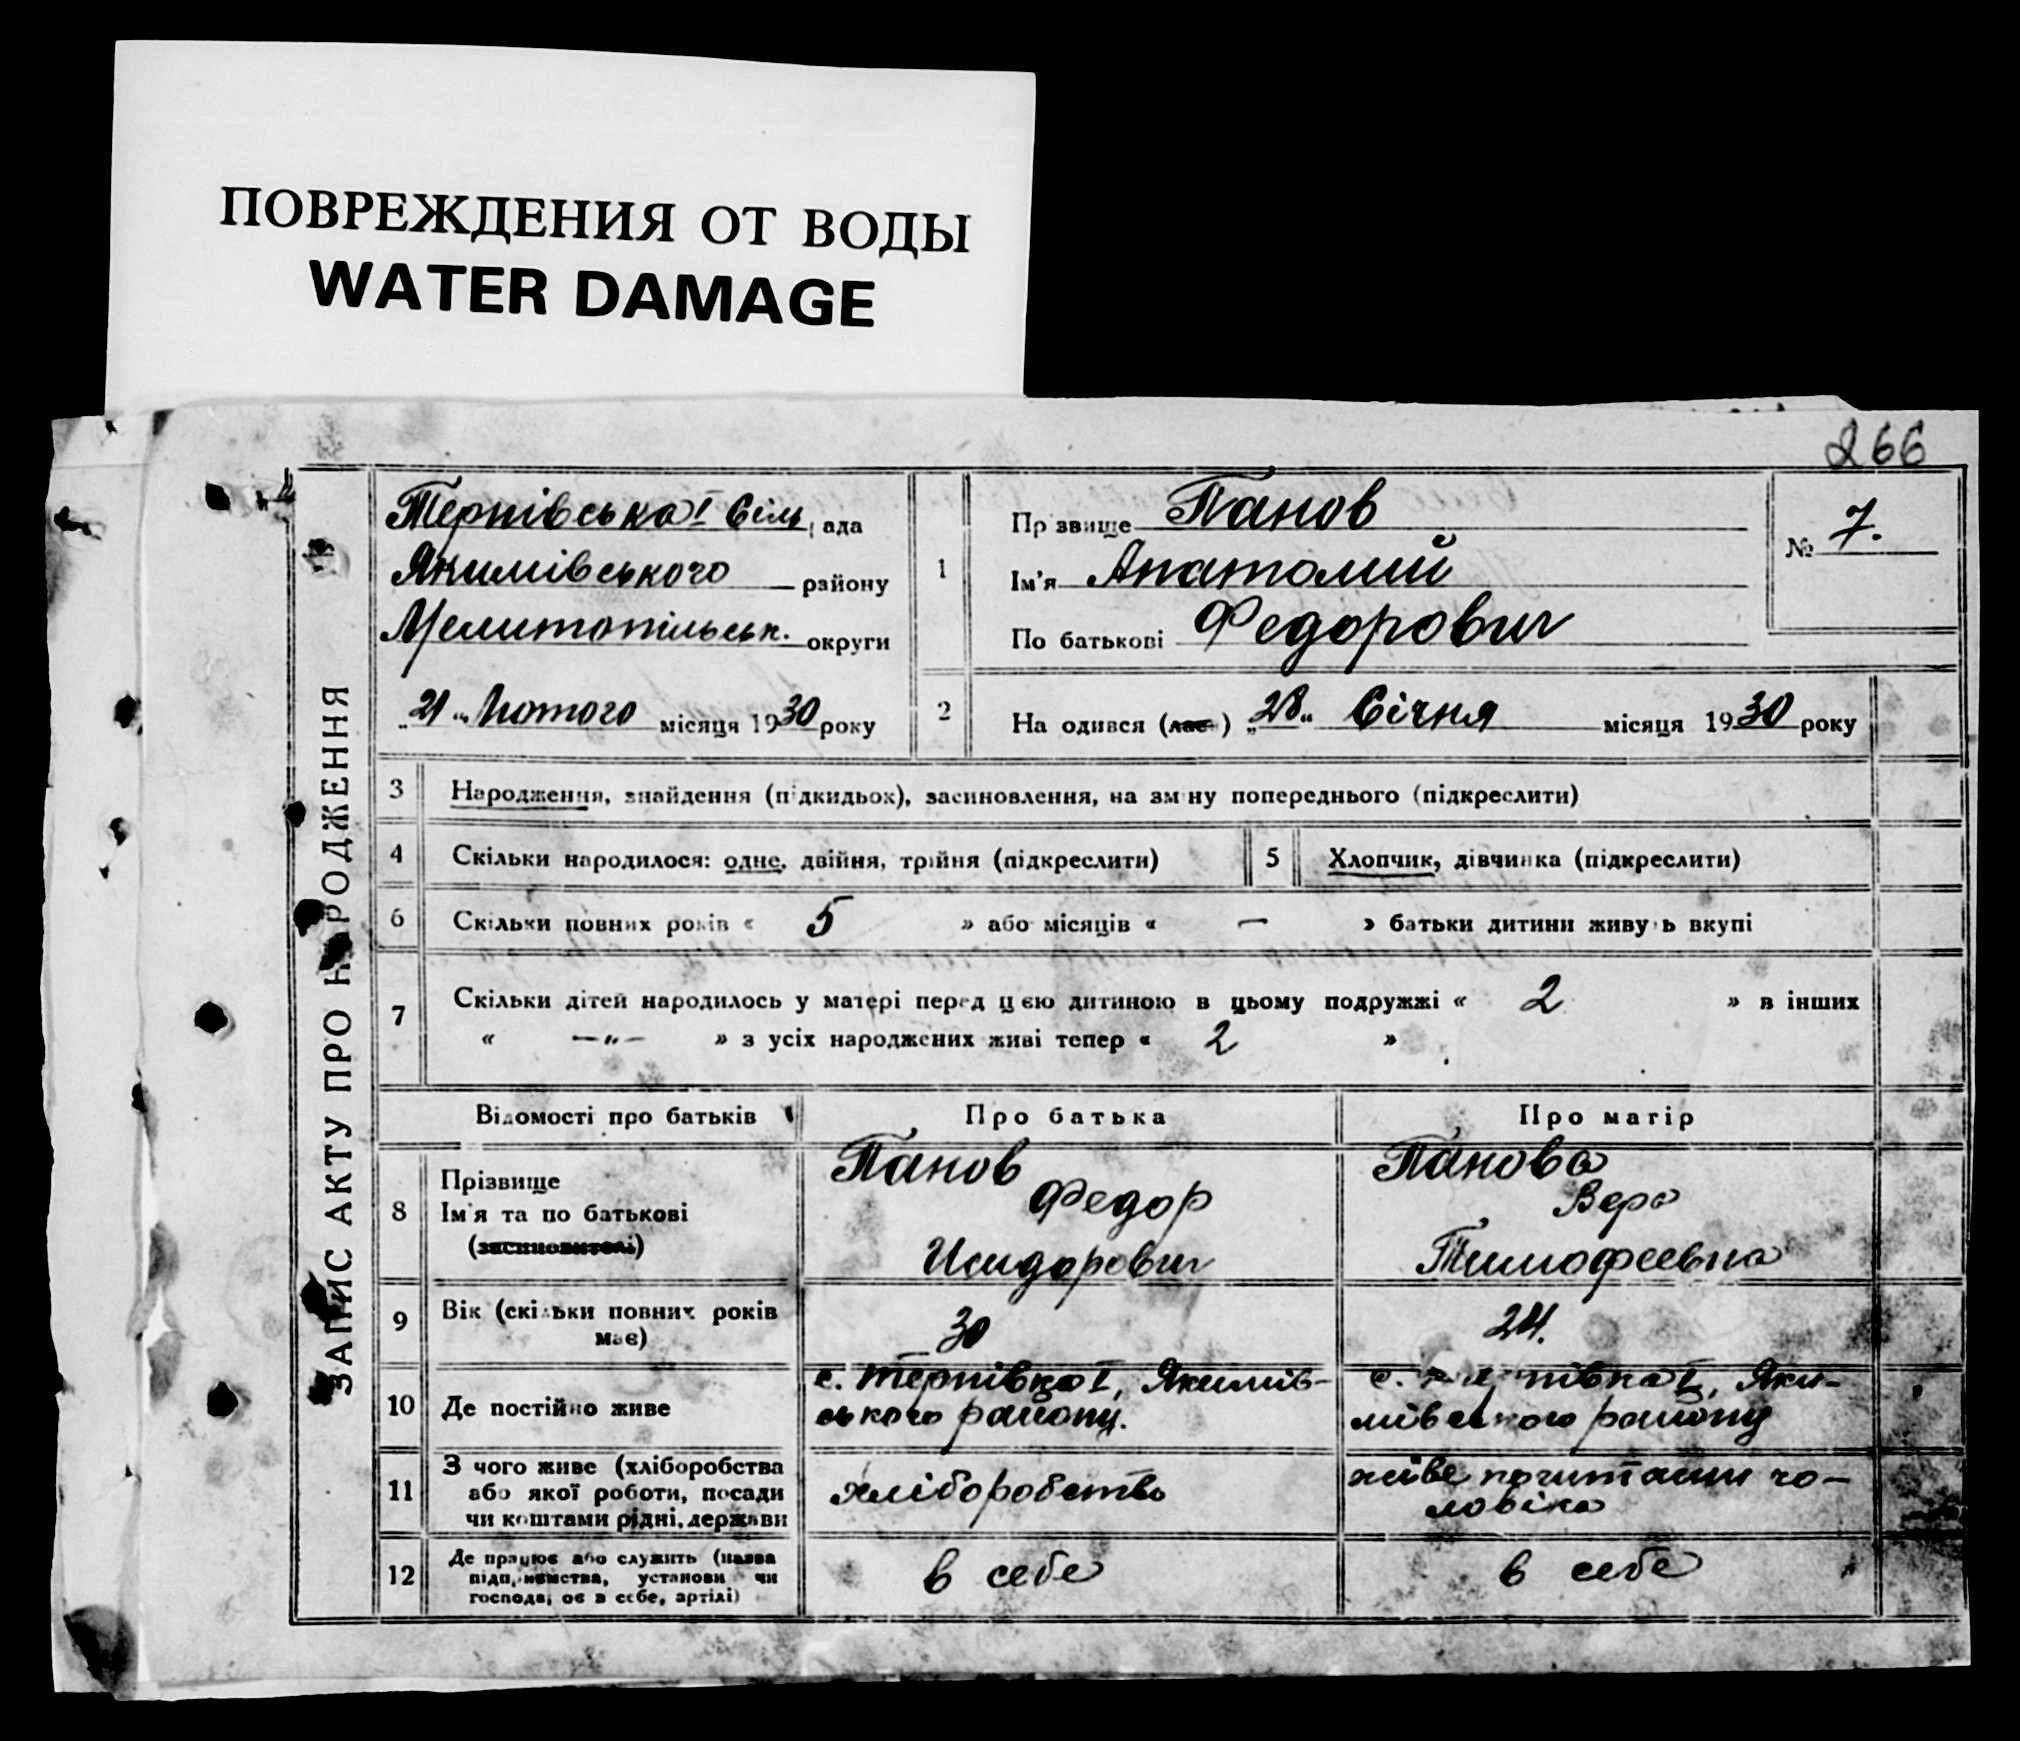 ПОВРЕЖДЕНИЯ ОТ ВОДЫ
WATER DAMAGE
266
ЗАПИС АКТУ ПРО Н РОДЖЕННЯ
Терпівська I Сіль ада
Якимівського району
Мелитопільськ. округи
„21“ Лютого місяця 1930 року
1
Пр звище Панов
Ім'я Анатолий
По батькові Федорович
№ 7.
2
На одився (лас) „28“ Січня місяця 1930 року
3 Народження, знайдення (підкидьох), засиновлення, на зміну попереднього (підкреслити)
4 Скільки народилося: одне, двійня, трійня (підкреслити)
5 Хлопчик, дівчинка (підкреслити)
6 Скільки повних років « 5 » або місяців « — » батьки дитини живу ь вкупі
7 Скільки дітей народилось у матері перед цією дитиною в цьому подружжі « 2 » в інших
« —„— » з усіх народжених живі тепер « 2 »
Відомості про батьків Про батька Про матір
8 Прізвище
Ім'я та по батькові
(засиновителі)
Панов
Федор
Исидорович
Панова
Вера
Тимофеевна
9 Вік (скільки повних років
має)
30
24.
10 Де постійно живе
с. Терпівка I, Якимів-
ського району.
с. півка I, Яки-
мівського району
11 З чого живе (хліборобства
або якої роботи, посади
чи коштами рідні, держави
хліборобство
живе чо-
ловіка
12 Де працює або служить (назва
підп, иємства, установи чи
господа, ос в себе, артілі)
в себе
в себе